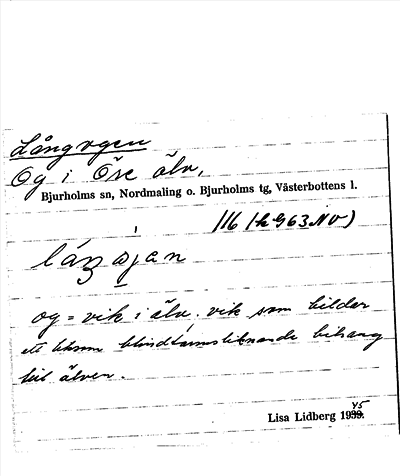 Långogen
Og i Öre älv,
Bjurholms sn, Nordmaling o. Bjurholms tg, Västerbottens l.
116 (
og = vik i älv, vik som bilder
ett blindtarmsliknande bihang
till älven.
Lisa Lidberg 1939. 45